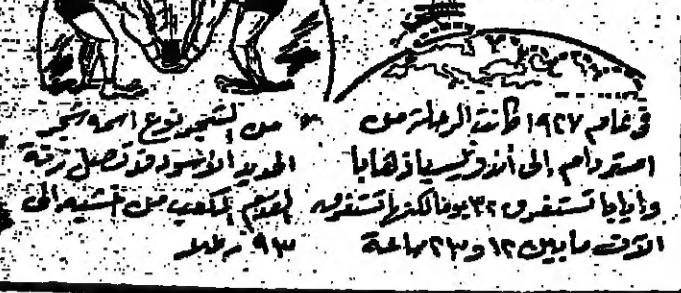 في عام ١٩٢٧ كانت الرحلة من
امستردام إلى أندونيسيا ذهابا
وإيابا تستغرق ٣٢ يوما لكنها تستغرق
الآن ما بين ١٢ و٢٣ ساعة
من الشجر نوع اسمه شجر
الحديد الأسود وتصل زنة
القدم المكعب من خشبه الى
٩٣ رطلا